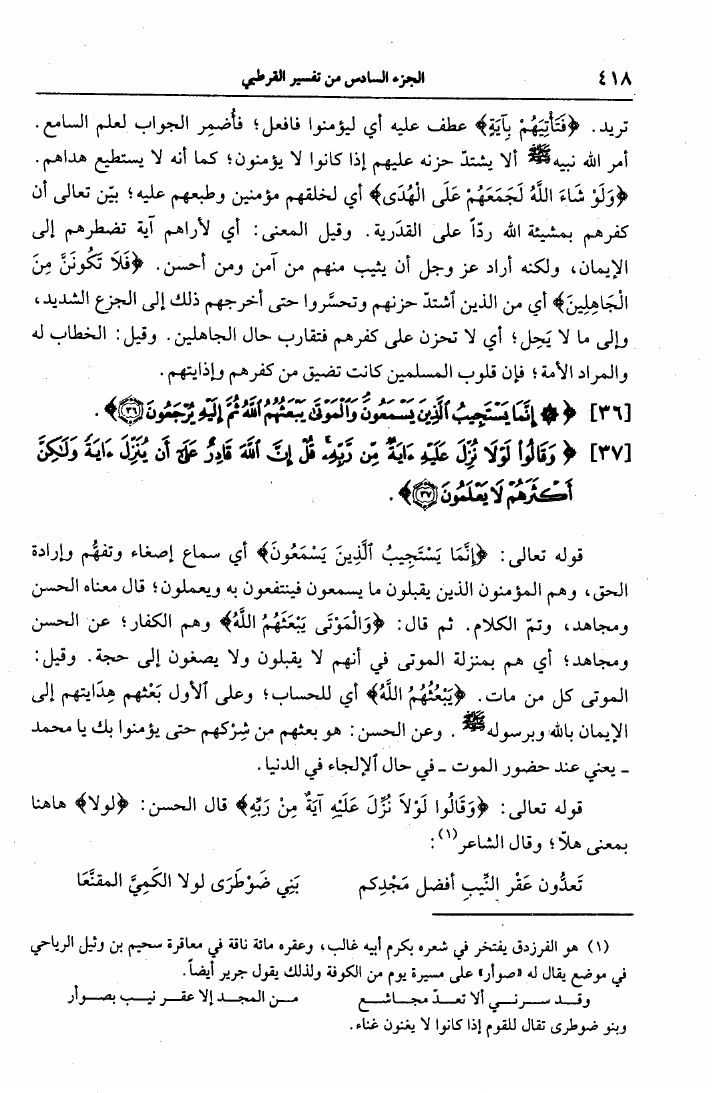 ٤١٨ الجزء السادس من تفسير القرطبي
تريد. ﴿فَتَأْتِيَهُمْ بِآيَةٍ﴾ عطف عليه أي ليؤمنوا فافعل؛ فأُضمِر الجواب لعلم السامع.
أمر الله نبيه ﷺ ألا يشتدّ حزنه عليهم إذا كانوا لا يؤمنون؛ كما أنه لا يستطيع هداهم.
﴿وَلَوْ شَاءَ اللَّهُ لَجَمَعَهُمْ عَلَى الْهُدَى﴾ أي لخلقهم مؤمنين وطبعهم عليه؛ بيّن تعالى أن
كفرهم بمشيئة الله ردّاً على القدَرية. وقيل المعنى: أي لأراهم آية تضطرهم إلى
الإيمان، ولكنه أراد عز وجل أن يثيب منهم من آمن ومن أحسن. ﴿فَلَا تَكُونَنَّ مِنَ
الْجَاهِلِينَ﴾ أي من الذين ٱشتدّ حزنهم وتحسَّروا حتى أخرجهم ذلك إلى الجزع الشديد،
وإلى ما لا يَحِل؛ أي لا تحزن على كفرهم فتقارب حال الجاهلين. وقيل: الخطاب له
والمراد الأمة؛ فإن قلوب المسلمين كانت تضيق من كفرهم وإذايتهم.
[٣٦] ﴿۞ إِنَّمَا يَسْتَجِيبُ ٱلَّذِينَ يَسْمَعُونَۘ وَٱلْمَوْتَىٰ يَبْعَثُهُمُ ٱللَّهُ ثُمَّ إِلَيْهِ يُرْجَعُونَ ٣٦﴾.
[٣٧] ﴿وَقَالُوا۟ لَوْلَا نُزِّلَ عَلَيْهِ ءَايَةٌ مِّن رَّبِّهِۦۚ قُلْ إِنَّ ٱللَّهَ قَادِرٌ عَلَىٰٓ أَن يُنَزِّلَ ءَايَةً وَلَٰكِنَّ
أَكْثَرَهُمْ لَا يَعْلَمُونَ ٣٧﴾.
قوله تعالى: ﴿إِنَّمَا يَسْتَجِيبُ ٱلَّذِينَ يَسْمَعُونَ﴾ أي سماع إصغاء وتفهُّم وإرادة
الحق، وهم المؤمنون الذين يقبلون ما يسمعون فينتفعون به ويعملون؛ قال معناه الحسن
ومجاهد، وتمّ الكلام. ثم قال: ﴿وَالْمَوْتَى يَبْعَثُهُمُ اللَّهُ﴾ وهم الكفار؛ عن الحسن
ومجاهد؛ أي هم بمنزلة الموتى في أنهم لا يقبلون ولا يصغون إلى حجة. وقيل:
الموتى كل من مات. ﴿يَبْعَثُهُمُ اللَّهُ﴾ أي للحساب؛ وعلى ٱلأول بَعْثهم هِدَايتهم إلى
الإيمان بالله وبرسوله ﷺ. وعن الحسن: هو بعثهم من شِرْكهم حتى يؤمنوا بك يا محمد
ـ يعني عند حضور الموت ـ في حال ٱلإلجاء في الدنيا.
قوله تعالى: ﴿وَقَالُوا لَوْلاَ نُزِّلَ عَلَيْهِ آيَةٌ مِنْ رَبِّهِ﴾ قال الحسن: ﴿لولا﴾ هاهنا
بمعنى هلاّ؛ وقال الشاعر(١):
تَعدُّون عَقْر النِّيبِ أفضل مَجْدِكم بَنِي ضَوْطَرَى لولا الكَمِيَّ المقنَّعَا
(١) هو الفرزدق يفتخر في شعره بكرم أبيه غالب، وعقره مائة ناقة في معاقرة سحيم بن وثيل الرياحي
في موضع يقال له «صوأر» على مسيرة يوم من الكوفة ولذلك يقول جرير أيضاً.
وقـد سـرنـي ألا تعـدّ مجـاشـع مـن المجـد إلا عقـر نيـب بصـوأر
وبنو ضوطرى تقال للقوم إذا كانوا لا يغنون غناء.